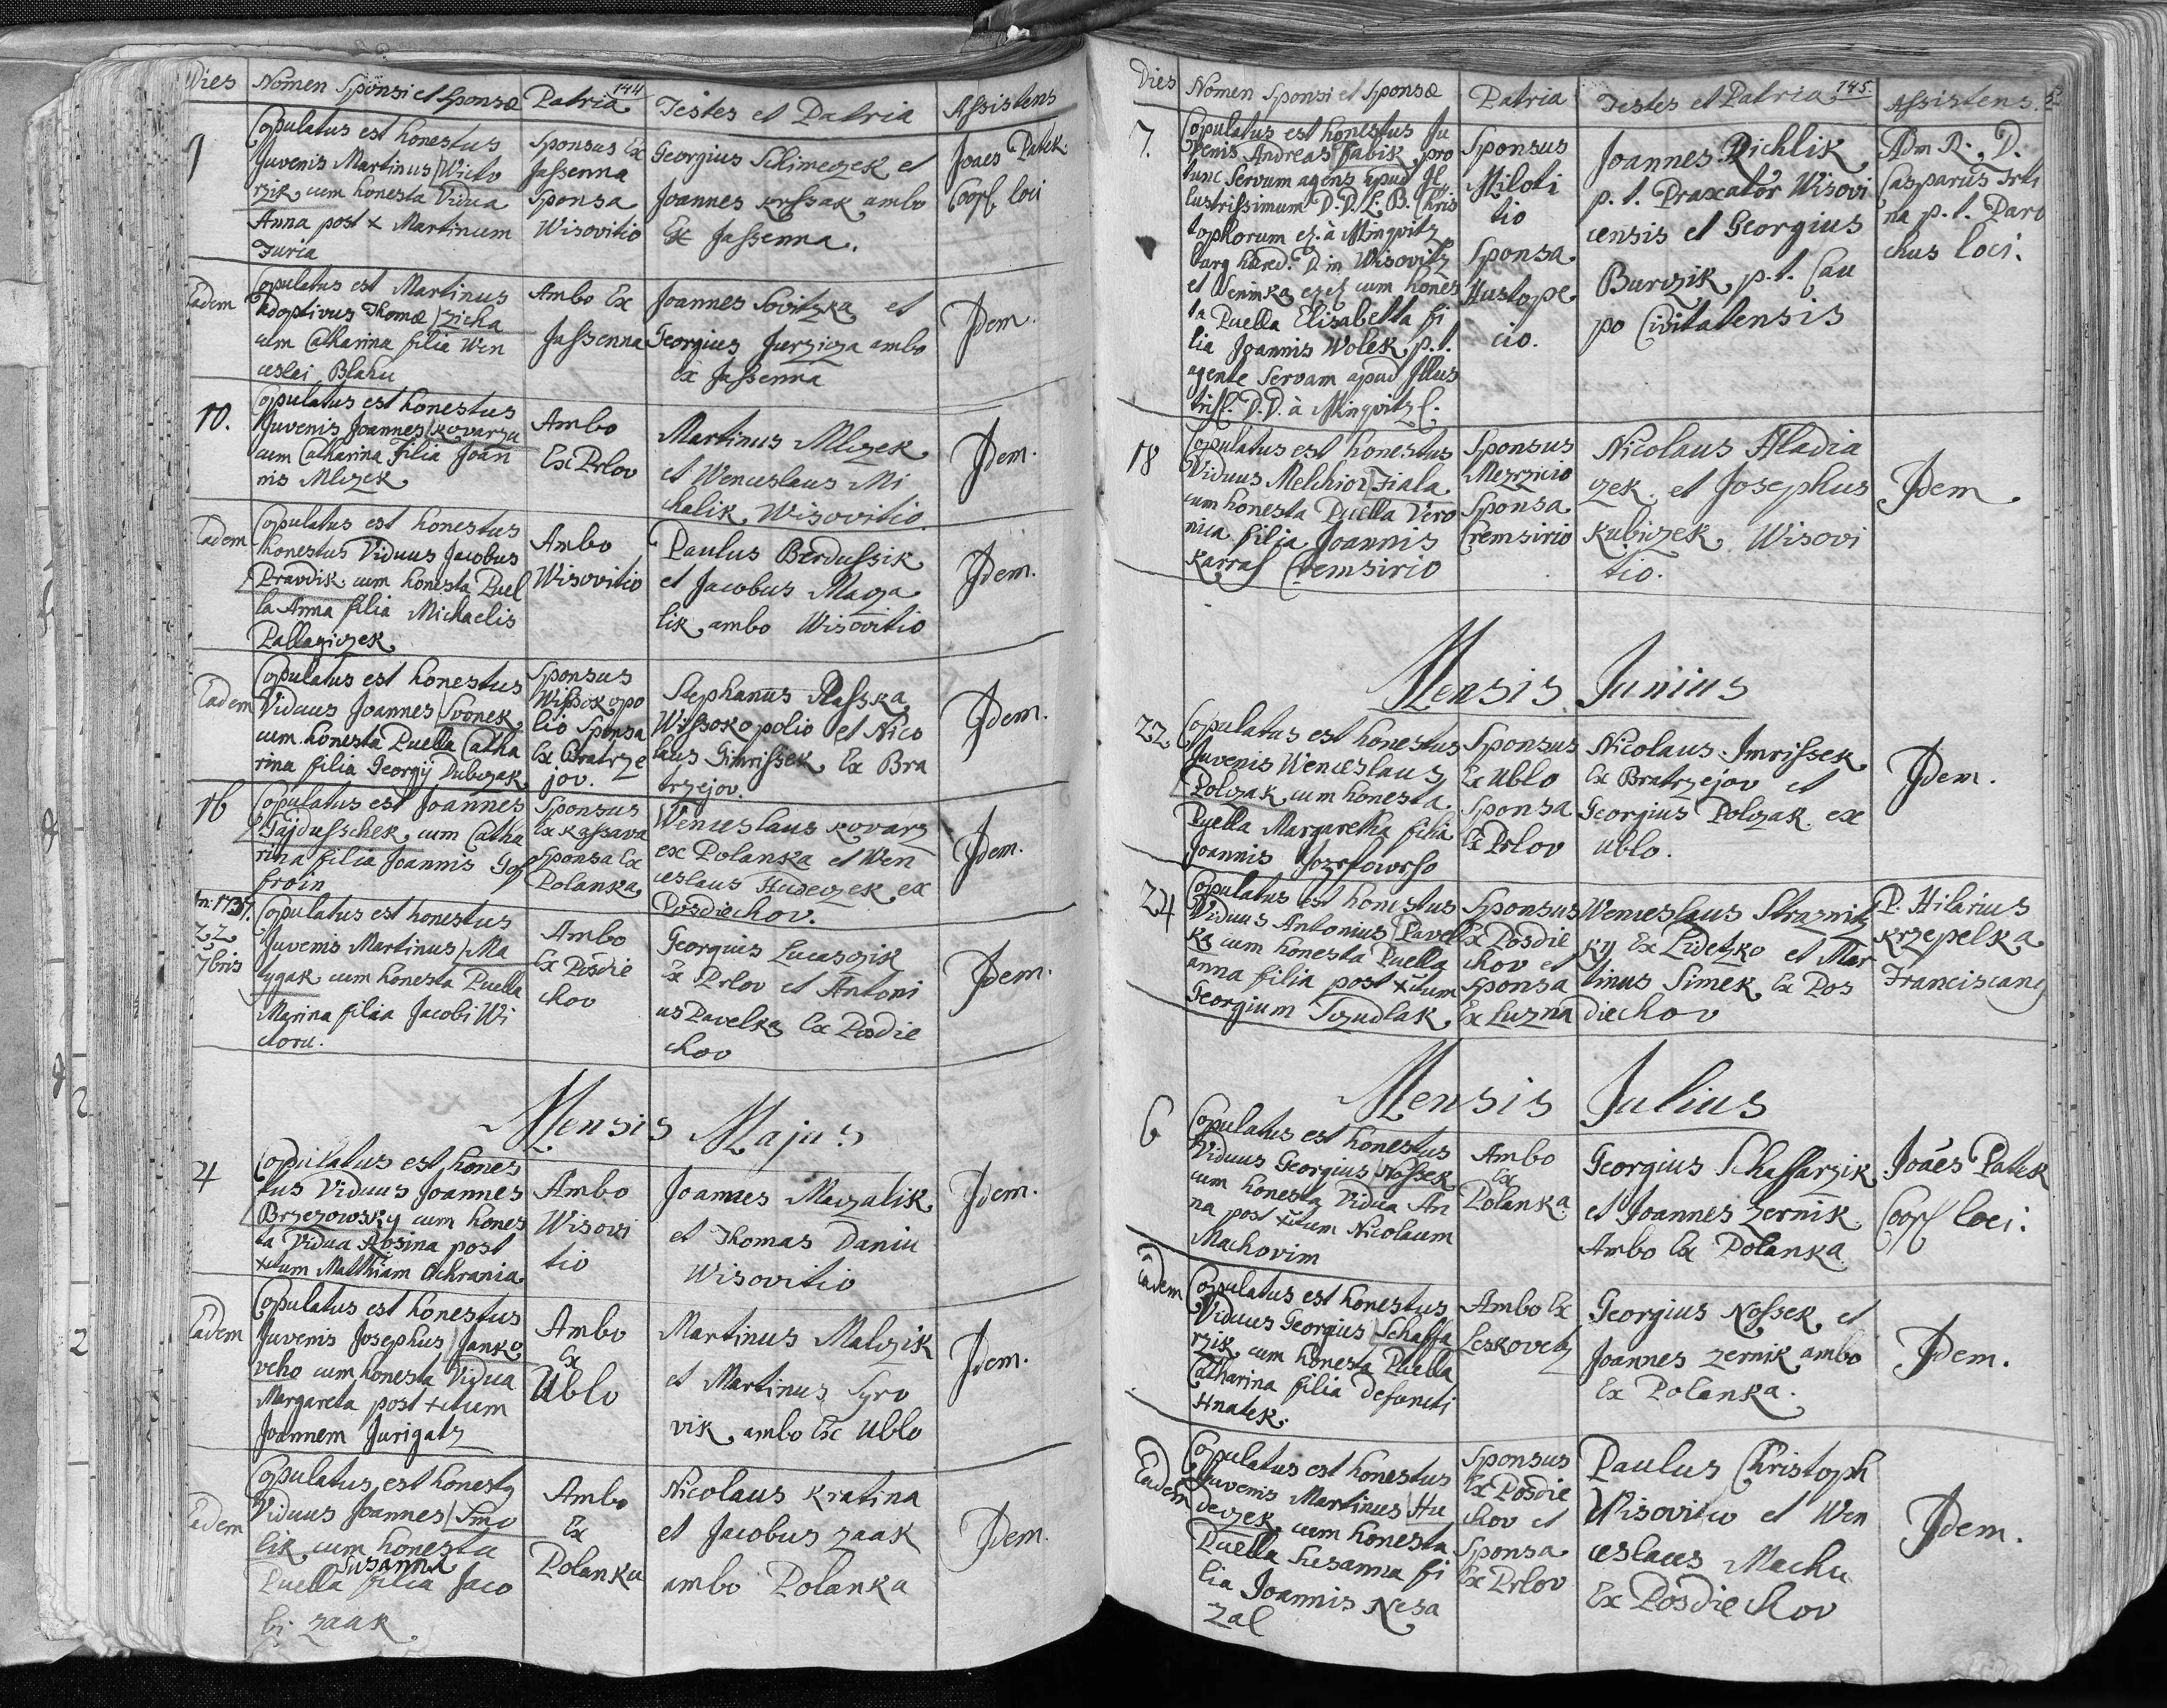 144
Dies Nomen Sponsi et Sponsæ Patria Testes et Patria Assistens
9
Copulatus est honestus
Juvenis Martinus Wicto
rzik cum honesta Vidua
Anna post x Martinum
Juria
Sponsus Ex
Jassenna
Sponsa
Wisovitio
Georgius Schimeczek et
Joannes Krssak ambo
Ex Jassenna.
Joaes Patek
Coop loci
Eadem
Copulatus est Martinus
Adoptivus Thomæ Zicha
cum Catharina filia Wen
ceslai Blahu
Ambo Ex
Jassenna
Joannes Sovitzka et
Georgius Jurziga ambo
Ex Jassenna
Idem.
10.
Copulatus est honestus
Juvenis Joannes Kovarzu
cum Catharina Filia Joan
nis Mlczek
Ambo
Ex Prlov
Martinus Mlczek
et Wenceslaus Mi
chalik Wisovitio.
Idem.
Eadem
Copulatus est honestus
honestus Viduus Jacobus
Pravdik cum honesta Puel
la Anna filia Michaelis
Pallagiczek
Ambo
Wisovitio
Paulus Berdussik
et Jacobus Macza
lik ambo Wisovitio
Idem.
Eadem
Copulatus est honestus
Viduus Joannes Svonek
cum honesta Puella Catha
rina filia Georgij Dubczak
Sponsus
Wissokopo
lio Sponsa
Ex Bratrze
jov.
Stephanus Rasska
Wissokopolio et Nico
laus Gimrissek Ex Bra
trzejov.
Idem.
16
Copulatus est Joannes
Gajdusschek cum Catha
rina filia Joannis Gof
froin
Sponsus
Ex Kassava
Sponsa Ex
Polanka
Wenceslaus Kovarz
ex Polanka et Wen
ceslaus Hudeczek ex
Posdiechov.
Idem.
An: 1737.
22
7bris
Copulatus est honestus
Juvenis Martinus Ma
tygak cum honesta Puella
Marina filia Jacobi Wi
ctoru.
Ambo
Ex Posdie
chov
Georgius Lucaszik
Ex Prlov et Antoni
us Pavelka Ex Posdie
chov
Idem.
Mensis Majus
4
Copulatus est hones
tus Viduus Joannes
Brzezowsky cum hones
ta Vidua Rosina post
xctum Matthiam Ochrania
Ambo
Wisovi
tio
Joannes Maczalik
et Thomas Daniu
Wisovitio
Idem.
Eadem
Copulatus est honestus
Juvenis Josephus Janko
veho cum honesta Vidua
Margareta post xctum
Joannem Jurigatz
Ambo
Ex
Ublo
Martinus Malczik
et Martinus Syro
vik ambo Ex Ublo
Idem.
Eadem
Copulatus est honestq
Viduus Joannes Smo
lik cum honesta
Susanna
Puella filia Jaco
bi Zaak
Ambo
Ex
Polanka
Nicolaus Kratina
et Jacobus Zaak
ambo Polanka
Idem.
145
Dies Nomen Sponsi et Sponsæ Patria Testes et Patria Assistens.
7.
Copulatus est honestus Ju
venis Andreas Fabik pro
tunc Servum agens apud Il
lustrissimum D.D.L.B. Chris
tophorum de à Minqvitz
burg hæred. D. in Wisovitz
et Weninka cum hones
ta Puella Elisabetha fi
lia Joannis Wolek p.t.
agente Servam apud Illus
triss. D.D. à Minqvitz.
Sponsus
Miloti
tio
Sponsa
Hustope
cio.
Joannes Richlik
p.t. Praxator Wisovi
censis et Georgius
Burzik p.t. Cau
po Civitatensis
Adm R. D.
Casparus Irti
na p.t. Paro
chus loci.
18
Copulatus est honestus
Viduus Melchior Fiala
cum honesta Puella Vero
nica filia Joannis
Karras Cremsirio
Sponsus
Mezrzicio
Sponsa
Cremsirio
Nicolaus Hladia
zek et Josephus
Kubiczek Wisovi
tio.
Idem.
Mensis Junius
22
Copulatus est honestus
Juvenis Wenceslaus
Polczak cum honesta
Puella Margaretha filia
Joannis Jozefowrfo
Sponsus
Ex Ublo
Sponsa
Ex Prlov
Nicolaus Imrissek
Ex Bratrzejov et
Georgius Polczak ex
Ublo.
Idem.
24
Copulatus est honestus
Viduus Antonius Pavel
ka cum honesta Puella
anna filia post xctum
Georgium Tczudlak
Sponsus
Ex Posdie
chov et
Sponsa
Ex Luzna
Wenceslaus Straznitz
ky Ex Lidetzko et Mar
tinus Simek Ex Pos
diechov
P. Hilarius
Krzepelka
Franciscang
Mensis Julius
6
Copulatus est honestus
Viduus Georgius Nossek
cum honesta Vidua An
na post xctum Nicolaum
Machovim
Ambo
Ex
Polanka
Georgius Schaffarzik
et Joannes Zernik
Ambo Ex Polanka
Joães Patek
Coop loci.
Eadem
Copulatus est honestus
Viduus Georgius Schaffa
rzik cum honesta Puella
Catharina filia defuncti
Hnatek.
Ambo Ex
Leskovetz
Georgius Nossek et
Joannes Zernik ambo
Ex Polanka.
Idem.
Eadem
Copulatus est honestus
Juvenis Martinus Hu
deczek cum honesta
Puella Susanna fi
lia Joannis Neza
Zal
Sponsus
Ex Posdie
chov et
Sponsa
Ex Prlov
Paulus Christoph
Wisovitio et Wen
ceslaus Machu
Ex Posdiechov
Idem.